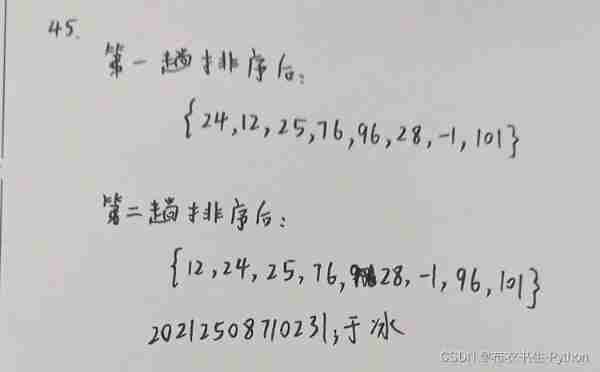 45.
第一趟排序后:
{24,12,25,76,96,28,-1,101}
第二趟排序后:
{12,24,25,76,28,-1,96,101}
20212508710231,于冰
CSDN @布衣书生-Python